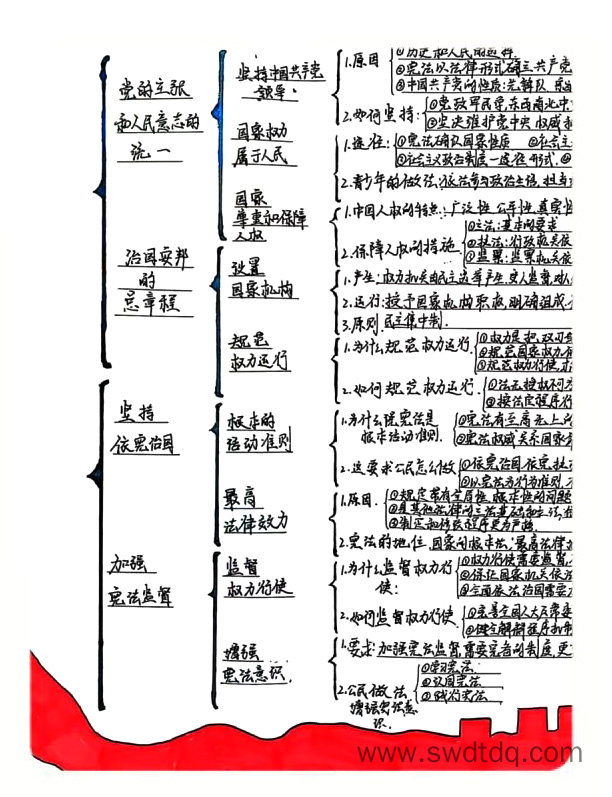 党的主张
和人民意志的
统一
坚持中国共产党
领导
1.原因
①历史和人民的选择
②宪法以法律形式确立共产党
③中国共产党的性质:先锋队
2.如何坚持:
①党政军民学,东西南北中
②坚决维护党中央权威和
国家权力
属于人民
1.途径:
①宪法确认国家性质
②社会主义政治制度一途径形式.
2.青少年的做法:依法参与政治生活,担当
国家
尊重和保障
人权
1.中国人权的特点:广泛性 公平性 真实性
2.保障人权的措施
①立法:基本的要求
②执法:行政机关依
③监察:监察机关依
治国安邦
的
总章程
设置
国家机构
1.产生:权力机关由民主选举产生,受人监督,对人
2.运行:授予国家机构职权,明确组成
3.原则 民主集中制.
规范
权力运行
1.为什么规范权力运行
①权力是把双刃
②规范国家权力
③规范权力行使,
2.如何规范权力运行.
①法无授权不
②按法定程序行
坚持
依宪治国
根本的
活动准则
1.为什么说宪法是
根本活动准则.
①宪法有至高无上的
②宪法权威关系国家
2.这要求公民怎么做
①依宪治国 依宪执
②以宪法为行为准则.
最高
法律效力
1.原因.
①规定带有全局性 根本性的问题
②是其他法律的立法基础和立法
③制定和修改程序更为严格.
2.宪法的地位 国家的根本法,最高法律
加强
宪法监督
监督
权力行使
1.为什么监督权力行
使:
①权力行使需要监督
②保证国家机关依
③全面依法治国需要
2.如何监督权力行使.
①完善全国人大及常委
②健全解释程序机制
增强
宪法意识.
1.要求:加强宪法监督,需要完善的制度,更
2.公民做法
增强宪法意
识.
①学习宪法
②认同宪法
③践行宪法
www.swdtdq.com